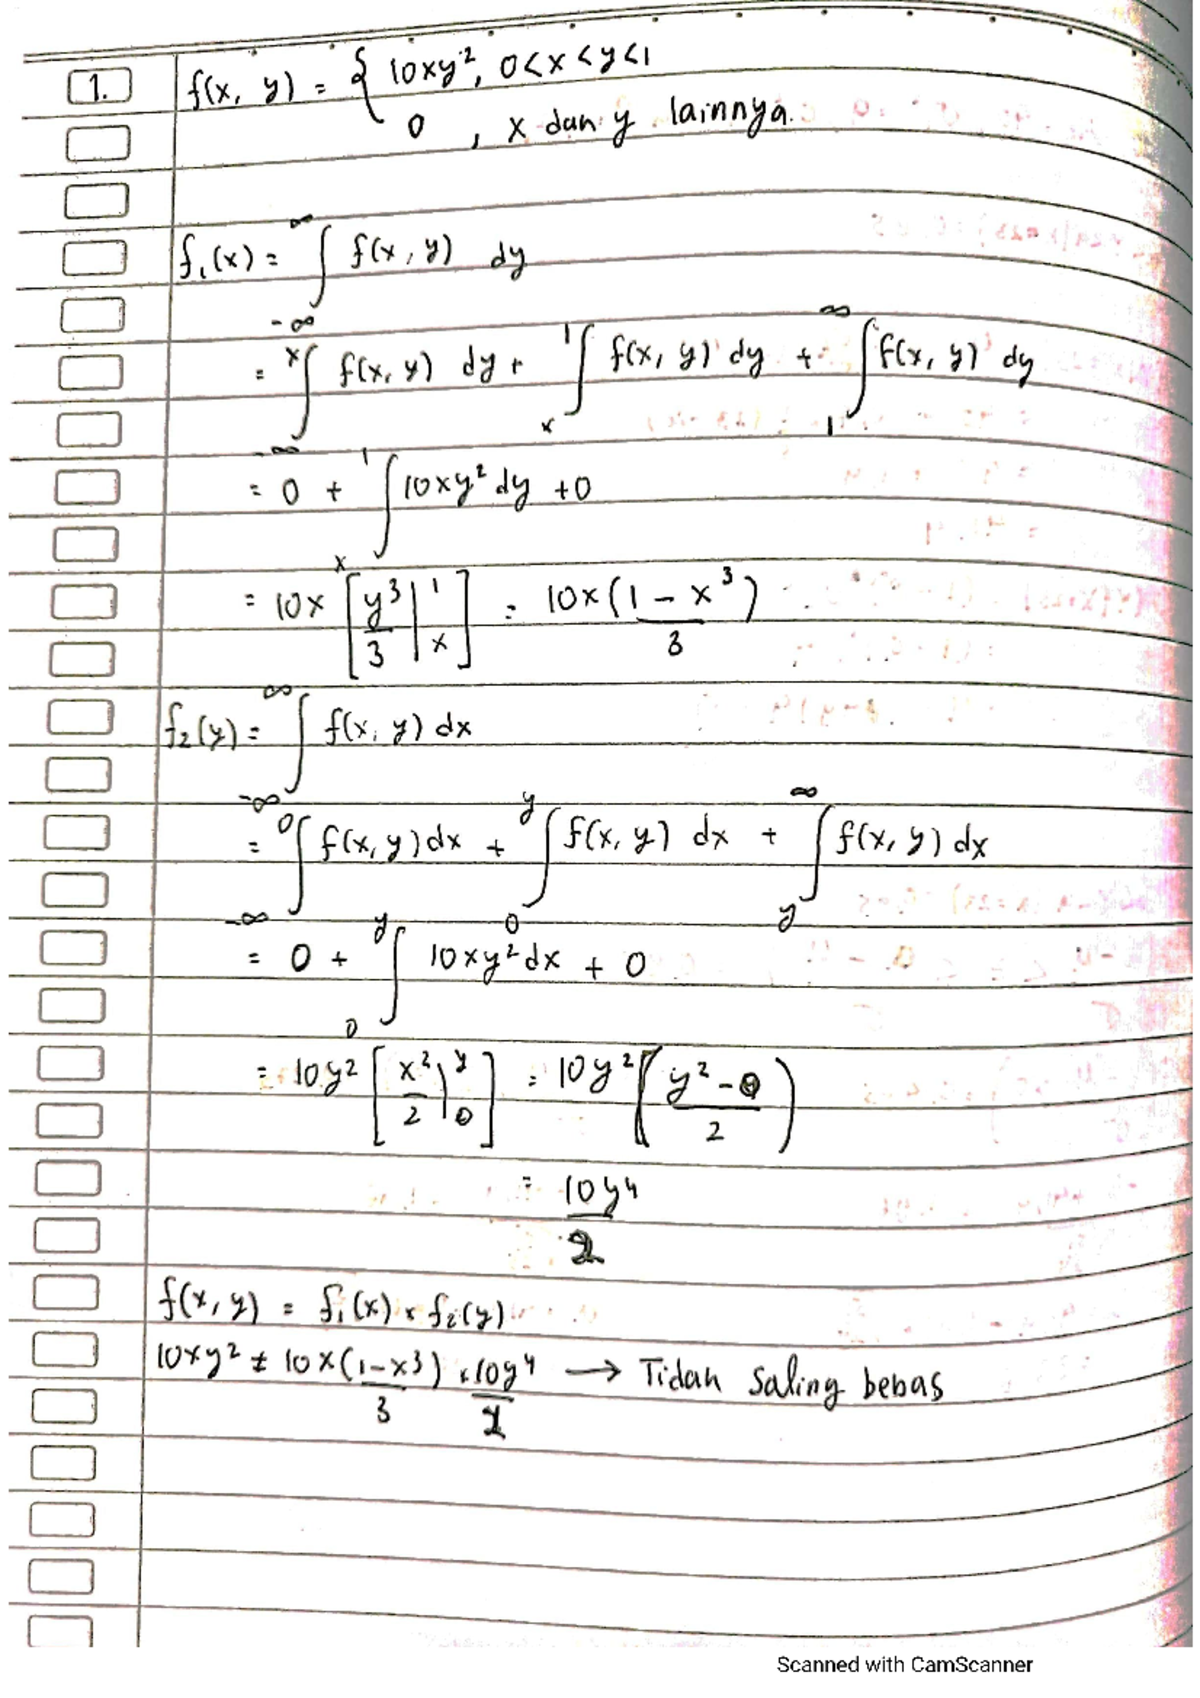 1. f(x, y) = { 10xy², 0<x<y<1
0 , x dan y lainnya.
f₁(x) = ∫_{-∞}^{∞} f(x, y) dy
= ∫_{-∞}^{x} f(x, y) dy + ∫_{x}^{1} f(x, y) dy + ∫_{1}^{∞} f(x, y) dy
= 0 + ∫_{x}^{1} 10xy² dy + 0
= 10x [y³/3 |_{x}^{1}] = 10x(1 - x³)/3
f₂(y) = ∫_{-∞}^{∞} f(x, y) dx
= ∫_{-∞}^{0} f(x, y) dx + ∫_{0}^{y} f(x, y) dx + ∫_{y}^{∞} f(x, y) dx
= 0 + ∫_{0}^{y} 10xy² dx + 0
= 10y² [x²/2 |_{0}^{y}] = 10y² (y² - 0 / 2)
= 10y⁴/2
f(x, y) = f₁(x) × f₂(y)
10xy² ≠ 10x(1-x³)/3 × 10y⁴/2 → Tidak Saling bebas
Scanned with CamScanner